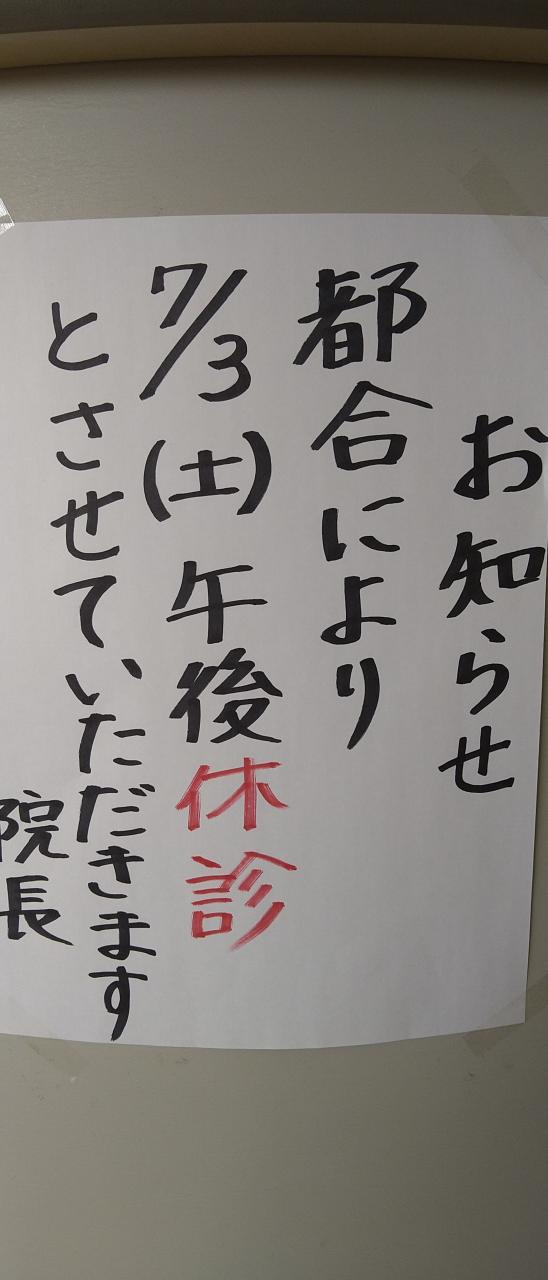 お知らせ
都合により
7/3(土)午後休診
とさせていただきます
院長